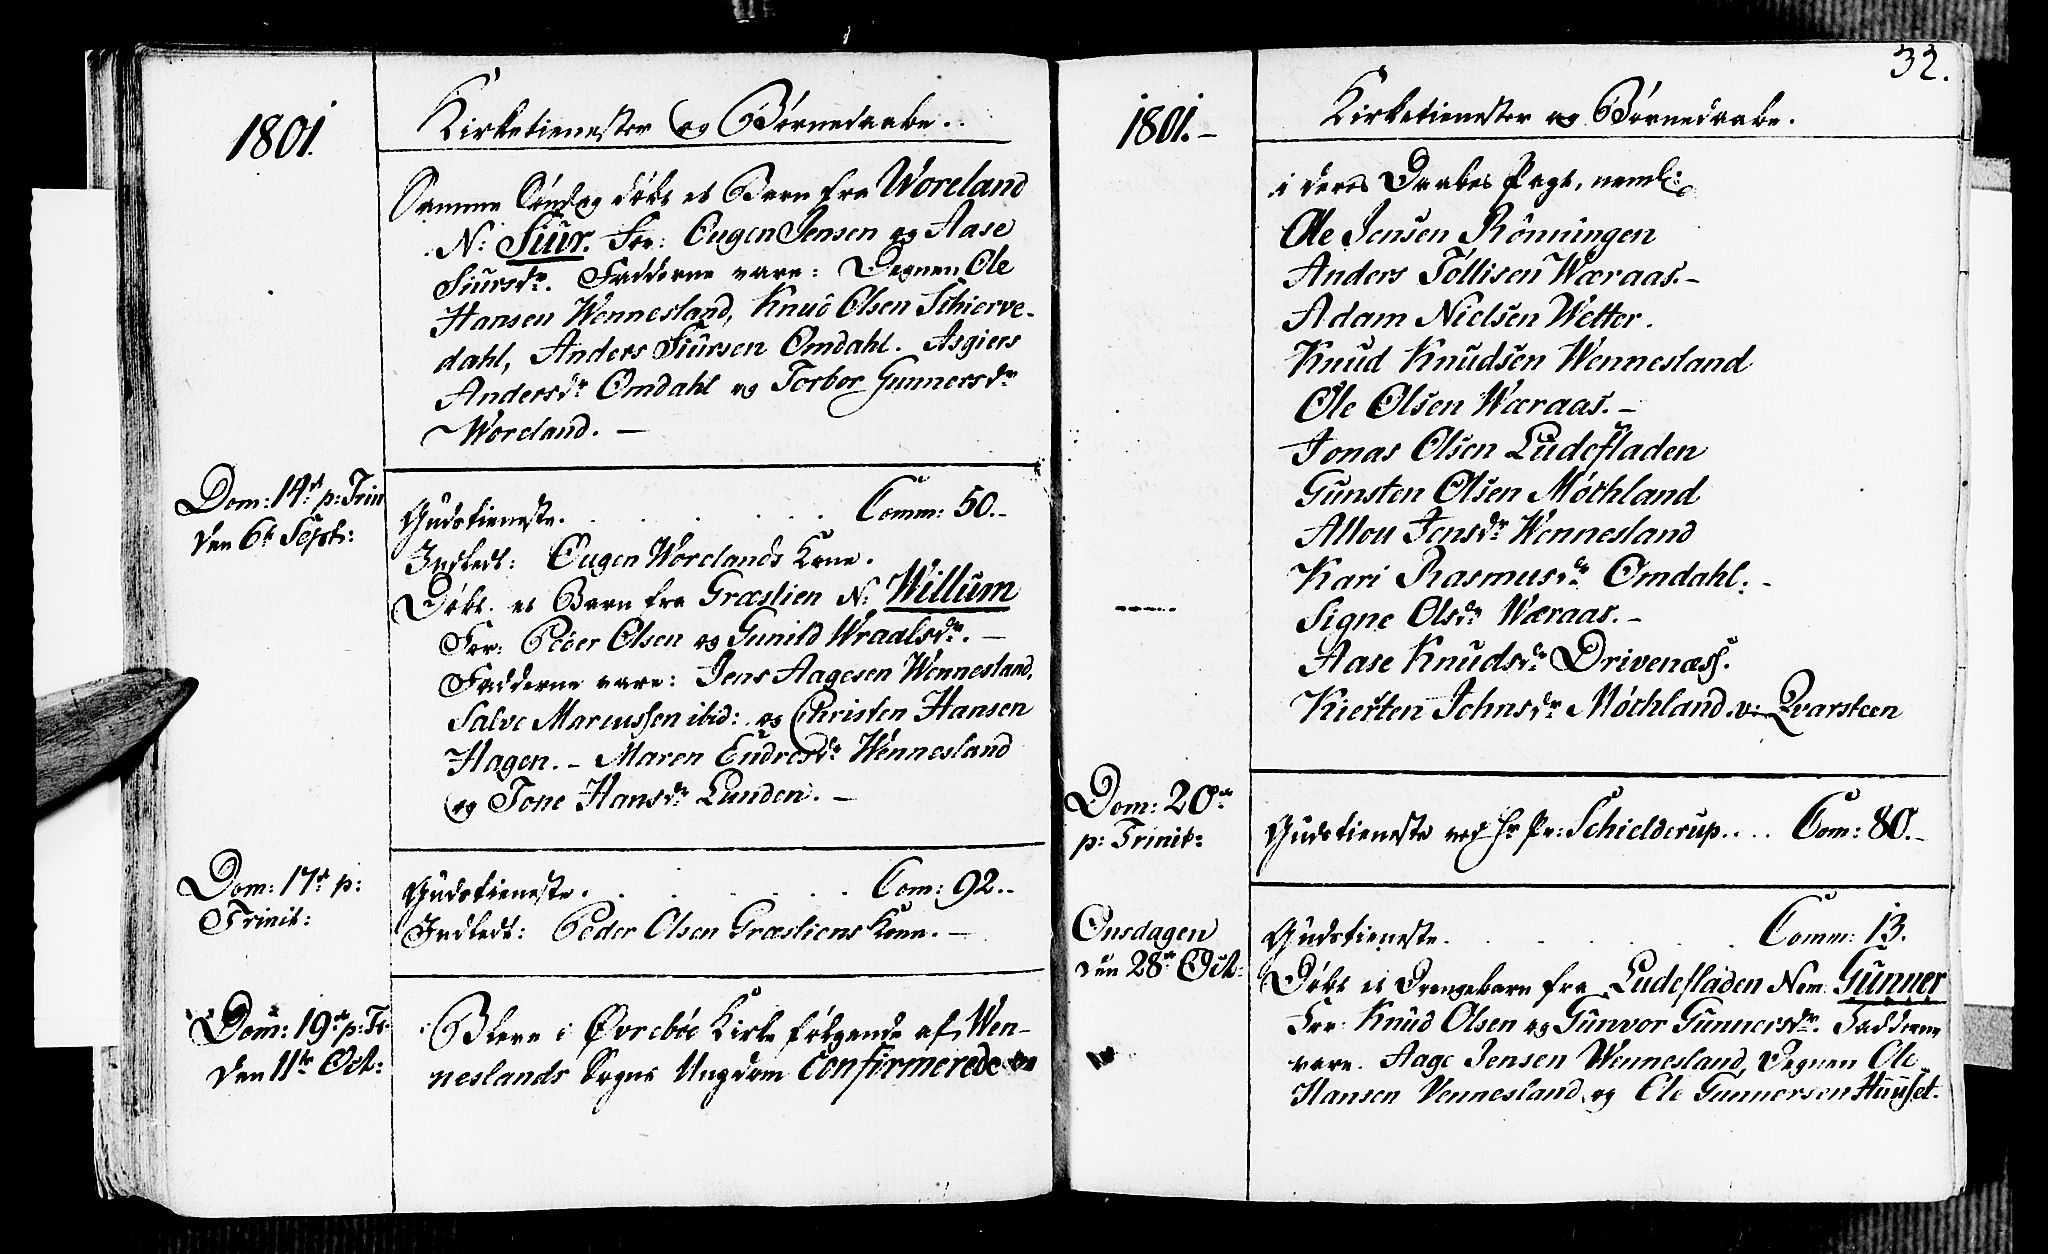 1801.
Kirketienester og Børnedaabe.
Samme Søndag døbt et Barn fra Woreland
N: Siur. For: Ougen Jensen og Aase
Siursdr. Fadderne vare: Degnen Ole
Hansen Wennesland, Knud Olsen Schierve-
dahl, Anders Siursen Omdahl. Asgiers
Andersdr Omdahl og Torbor Gunnersdr
Woreland. —
Dom: 14de p: Trin
den 6te Septr:
Gudstieneste. . . . . . . Comm: 50.-
Indledt: Ougen Worelands Kone.
Døbt. et Barn fra Græslien N: Willum
For: Peder Olsen og Gunild Wraalsdr. —
Fadderne vare: Jens Aagesen Wennesland,
Salve Marcussen ibid: og Christen Hansen
Hagen. - Maren Endresdr Wennesland
og Tone Hansdr Lunden. —
Dom: 17de p:
Trinit:
Gudstieneste. . . . . . . Com: 92.-
Indledt: Peder Olsen Græsliens Kone. —
Dom: 19de p: Tr
den 11te Oct:
Bleve i Øvrebøe Kirke følgende af Wen-
neslands Sogns Ungdom Confirmerede
32.
1801.-
Kirketienester og Børnedaabe.
i deres Daabes Pagt, neml:
Ole Jensen Rönningen
Anders Tollisen Wæraas.-
Adam Nielsen Wetter.
Knud Knudsen Wennesland
Ole Olsen Wæraas.-
Jonas Olsen Ludefladen
Gunsten Olsen Møthland
Allou Jensdr Wennesland
Kari Rasmusdr Omdahl.-
Signe Olsdr Wæraas.-
Aase Knudsdr Drivenæss.
Kiersten Johnsdr Møthland v: Qvarsteen
Dom: 20de
p: Trinit:
Gudstieneste ved Hr Pr: Schielderup. . . . Com: 80.-
Onsdagen
den 28de Oct:
Gudstieneste. . . . . . . Comm: 13.
Døbt et Drengebarn fra Ludefladen Nom: Gunner
For: Knud Olsen og Gunvor Gunnersdr. Fadderne
vare. Aage Jensen Wennesland, Degnen Ole
Hansen Vennesland og Ole Gunnersen Huuset.